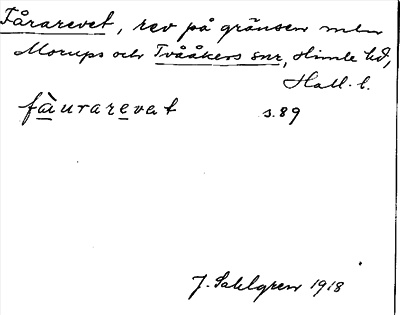 Fårarevet, rev på gränsen mellan
Morups och Tvååkers snr, Himle hd,
Hall. l.
fàurarevat s. 89
J. Sahlgren 1918